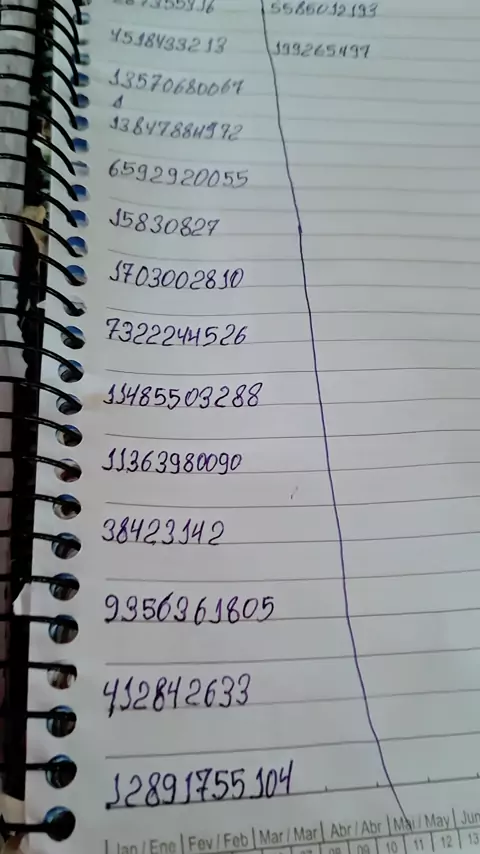 5585012193
4518433213
199265497
13570680067
1
13847884972
6592920055
15830827
1703002810
7322244526
11485503288
11363980090
38423142
9356361805
412842633
12891755104
Jan / Ene | Fev / Feb | Mar / Mar | Abr / Abr | Mai / May | Jun
10 11 12 13